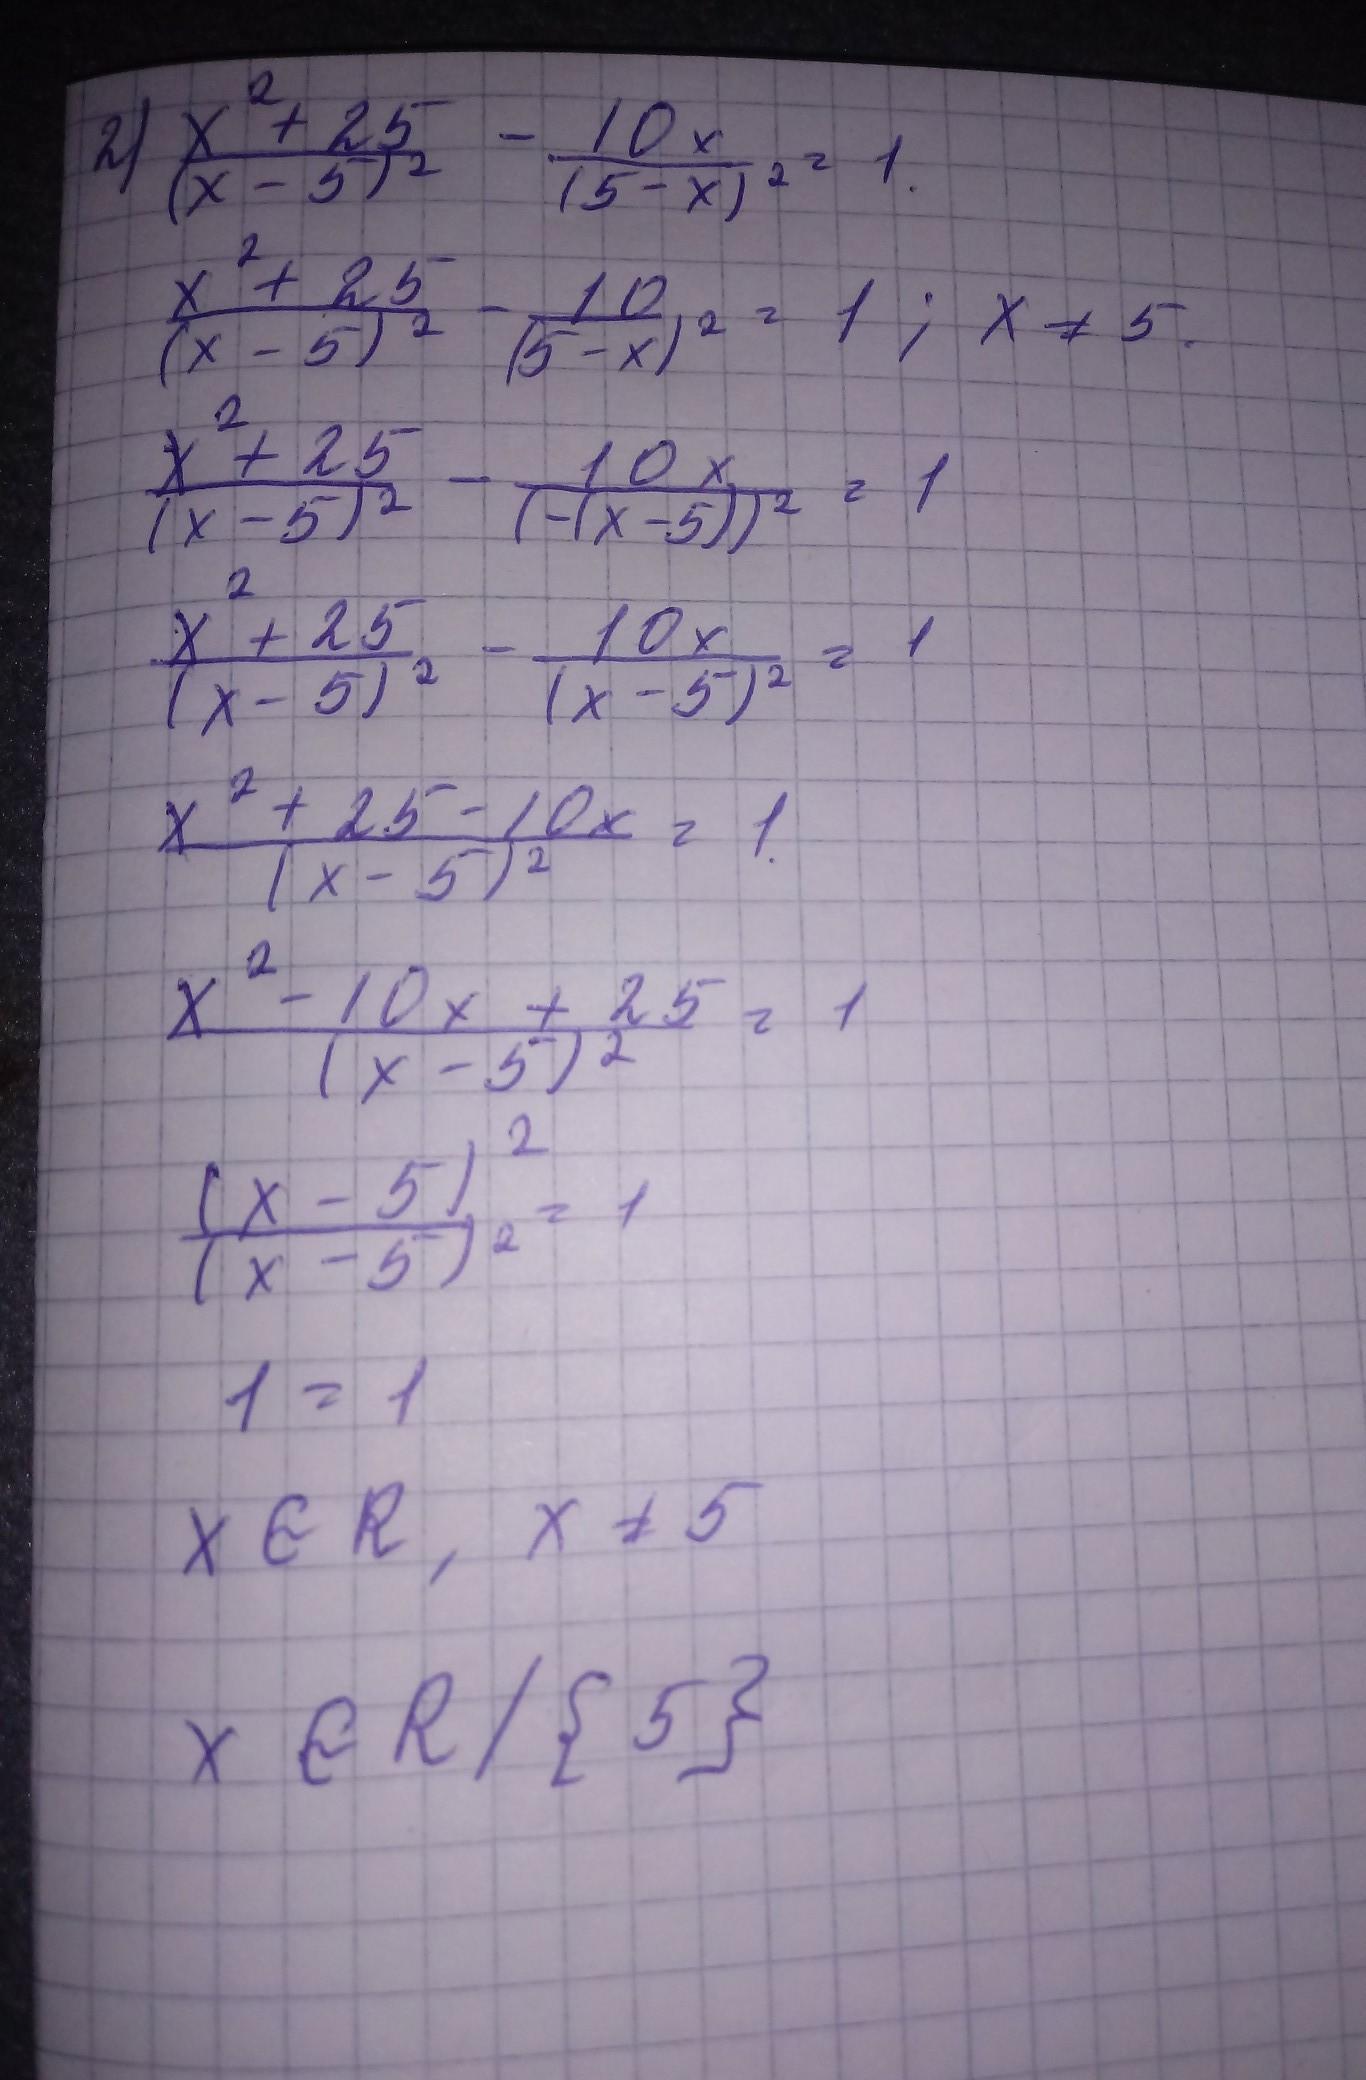 2) (x² + 25)/(x - 5)² - 10x/(5 - x)² = 1.
(x² + 25)/(x - 5)² - 10/(5 - x)² = 1 ; x ≠ 5.
(x² + 25)/(x - 5)² - 10x/(-(x - 5))² = 1
(x² + 25)/(x - 5)² - 10x/(x - 5)² = 1
(x² + 25 - 10x)/(x - 5)² = 1.
(x² - 10x + 25)/(x - 5)² = 1
(x - 5)²/(x - 5)² = 1
1 = 1
x ∈ R, x ≠ 5
x ∈ R / {5}